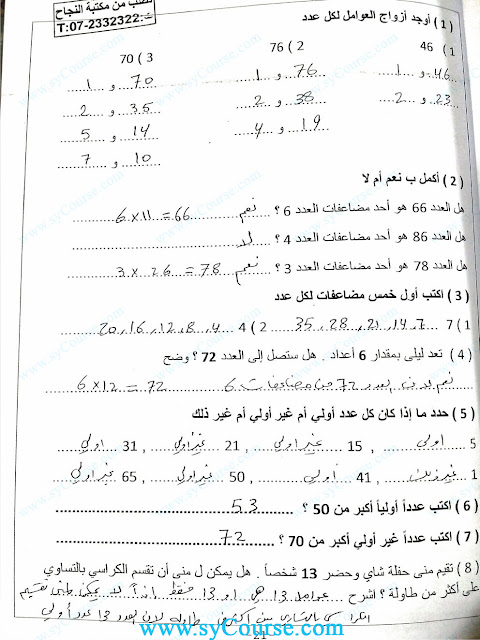 تطلب من مكتبة النجاح
T:07-2332322:ت
( 1 ) أوجد أزواج العوامل لكل عدد
1 ) 46 2 ) 76 3 ) 70
46 و 1 76 و 1 70 و 1
23 و 2 38 و 2 35 و 2
19 و 4 14 و 5
10 و 7
( 2 ) أكمل ب نعم أم لا
هل العدد 66 هو أحد مضاعفات العدد 6 ؟ نعم 66 = 11 × 6
هل العدد 86 هو أحد مضاعفات العدد 4 ؟ لا
هل العدد 78 هو أحد مضاعفات العدد 3 ؟ نعم 78 = 26 × 3
( 3 ) اكتب أول خمس مضاعفات لكل عدد
1 ) 7 7 , 14 , 21 , 28 , 35 2 ) 4 4 , 8 , 12 , 16 , 20
( 4 ) تعد ليلى بمقدار 6 أعداد . هل ستصل إلى العدد 72 ؟ وضح
نعم لان العدد 72 من مضاعفات 6 6 × 12 = 72
( 5 ) حدد ما إذا كان كل عدد أولي أم غير أولي أم غير ذلك
5 اولي , 15 غير اولي , 21 غير اولي , 31 اولي
1 غير ذلك , 41 اولي , 50 غير اولي , 65 غير اولي
( 6 ) اكتب عدداً أولياً أكبر من 50 ؟ 53
( 7 ) اكتب عدداً غير أولي أكبر من 70 ؟ 72
( 8 ) تقيم منى حفلة شاي وحضر 13 شخصاً . هل يمكن ل منى أن تقسم الكراسي بالتساوي
على أكثر من طاولة ؟ اشرح عوامل 13 هي 1 و 13 فقط اذاً لا يمكن تقسيم
الكراسي بالتساوي بين اكثر من طاولة لان العدد 13 عدد أولي
www.syCourse.com